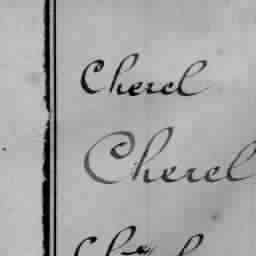 Cherel
Cherel